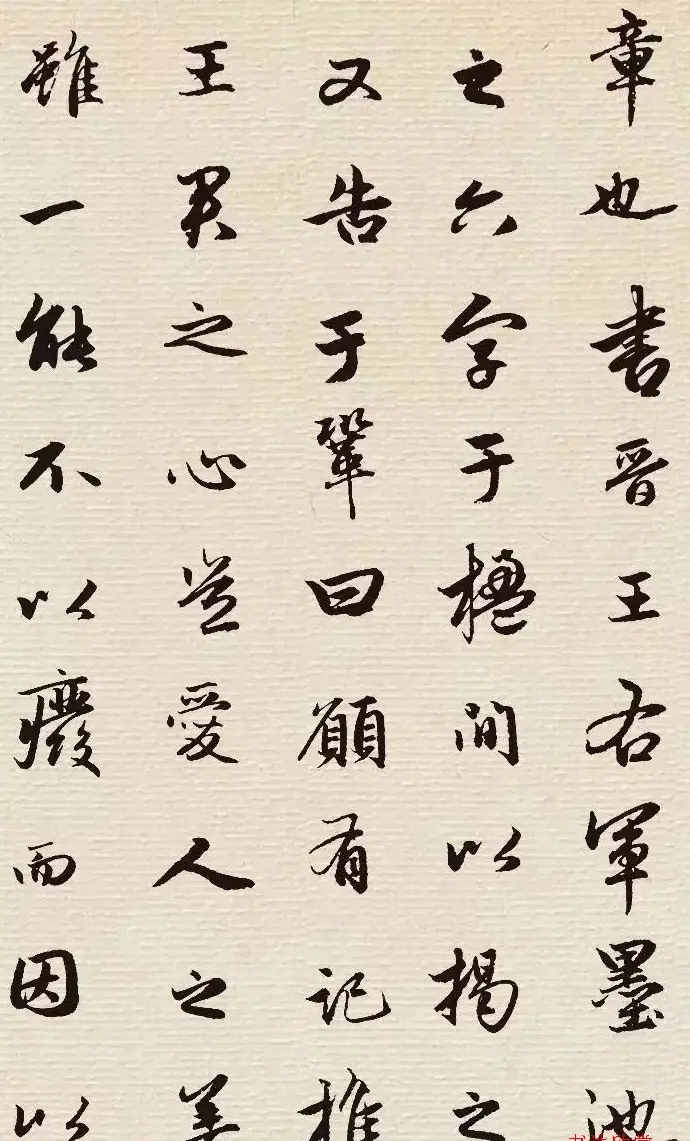 章也書晋王右軍墨池
之六字于楹間以揭之
又告于鞏曰願有記推
王君之心豈愛人之善
雖一能不以癈而因以